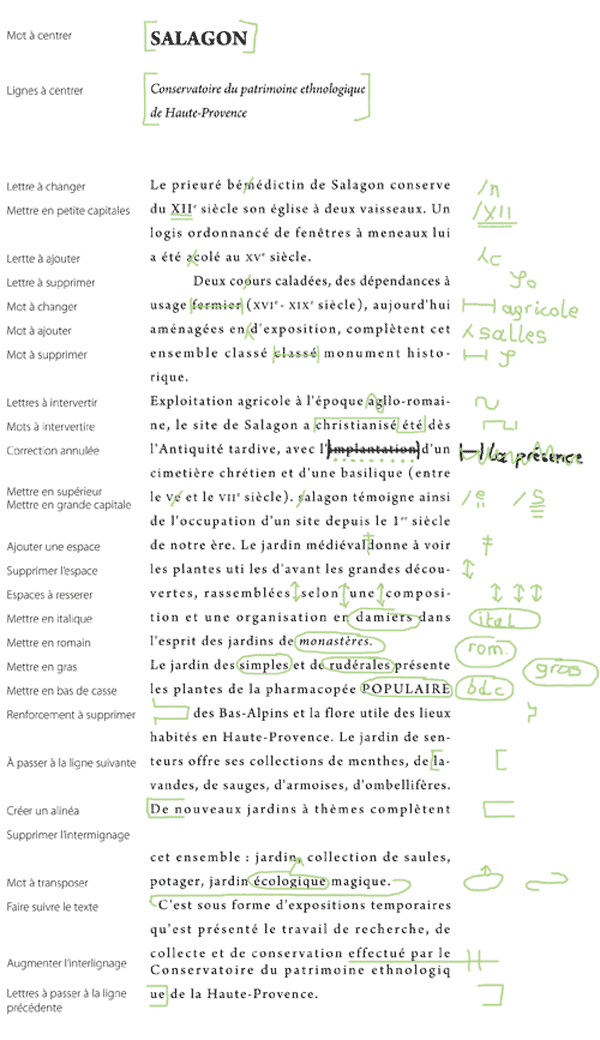 Mot à centrer SALAGON
Lignes à centrer Conservatoire du patrimoine ethnologique
de Haute-Provence
Lettre à changer Le prieuré bémédictin de Salagon conserve /n
Mettre en petite capitales du XIIe siècle son église à deux vaisseaux. Un /XII
logis ordonnancé de fenêtres à meneaux lui
Lertte à ajouter a été acolé au XVe siècle. c
Lettre à supprimer Deux coours caladées, des dépendances à
Mot à changer usage fermier (XVIe- XIXe siècle), aujourd'hui agricole
Mot à ajouter aménagées en d'exposition, complètent cet salles
Mot à supprimer ensemble classé classé monument histo-
rique.
Lettres à intervertir Exploitation agricole à l'époque agllo-romai-
Mots à intervertire ne, le site de Salagon a christianisé été dès
Correction annulée l'Antiquité tardive, avec l'implantation d'un la présence
cimetière chrétien et d'une basilique (entre
Mettre en supérieur le Ve et le VIIe siècle). salagon témoigne ainsi /e /S
Mettre en grande capitale
de l'occupation d'un site depuis le 1er siècle
Ajouter une espace de notre ère. Le jardin médiévaldonne à voir
Supprimer l'espace les plantes uti les d'avant les grandes décou-
Espaces à resserer vertes, rassemblées selon une composi-
Mettre en italique tion et une organisation en damiers dans ital
Mettre en romain l'esprit des jardins de monastères. rom.
Mettre en gras Le jardin des simples et de rudérales présente gras
Mettre en bas de casse les plantes de la pharmacopée POPULAIRE bdc
Renforcement à supprimer des Bas-Alpins et la flore utile des lieux
habités en Haute-Provence. Le jardin de sen-
À passer à la ligne suivante teurs offre ses collections de menthes, de la-
vandes, de sauges, d'armoises, d'ombellifères.
Créer un alinéa De nouveaux jardins à thèmes complètent
Supprimer l'intermignage
cet ensemble : jardin, collection de saules,
Mot à transposer potager, jardin écologique magique.
Faire suivre le texte C'est sous forme d'expositions temporaires
qu'est présenté le travail de recherche, de
collecte et de conservation effectué par le
Augmenter l'interlignage Conservatoire du patrimoine ethnologiq
Lettres à passer à la ligne ue de la Haute-Provence.
précédente